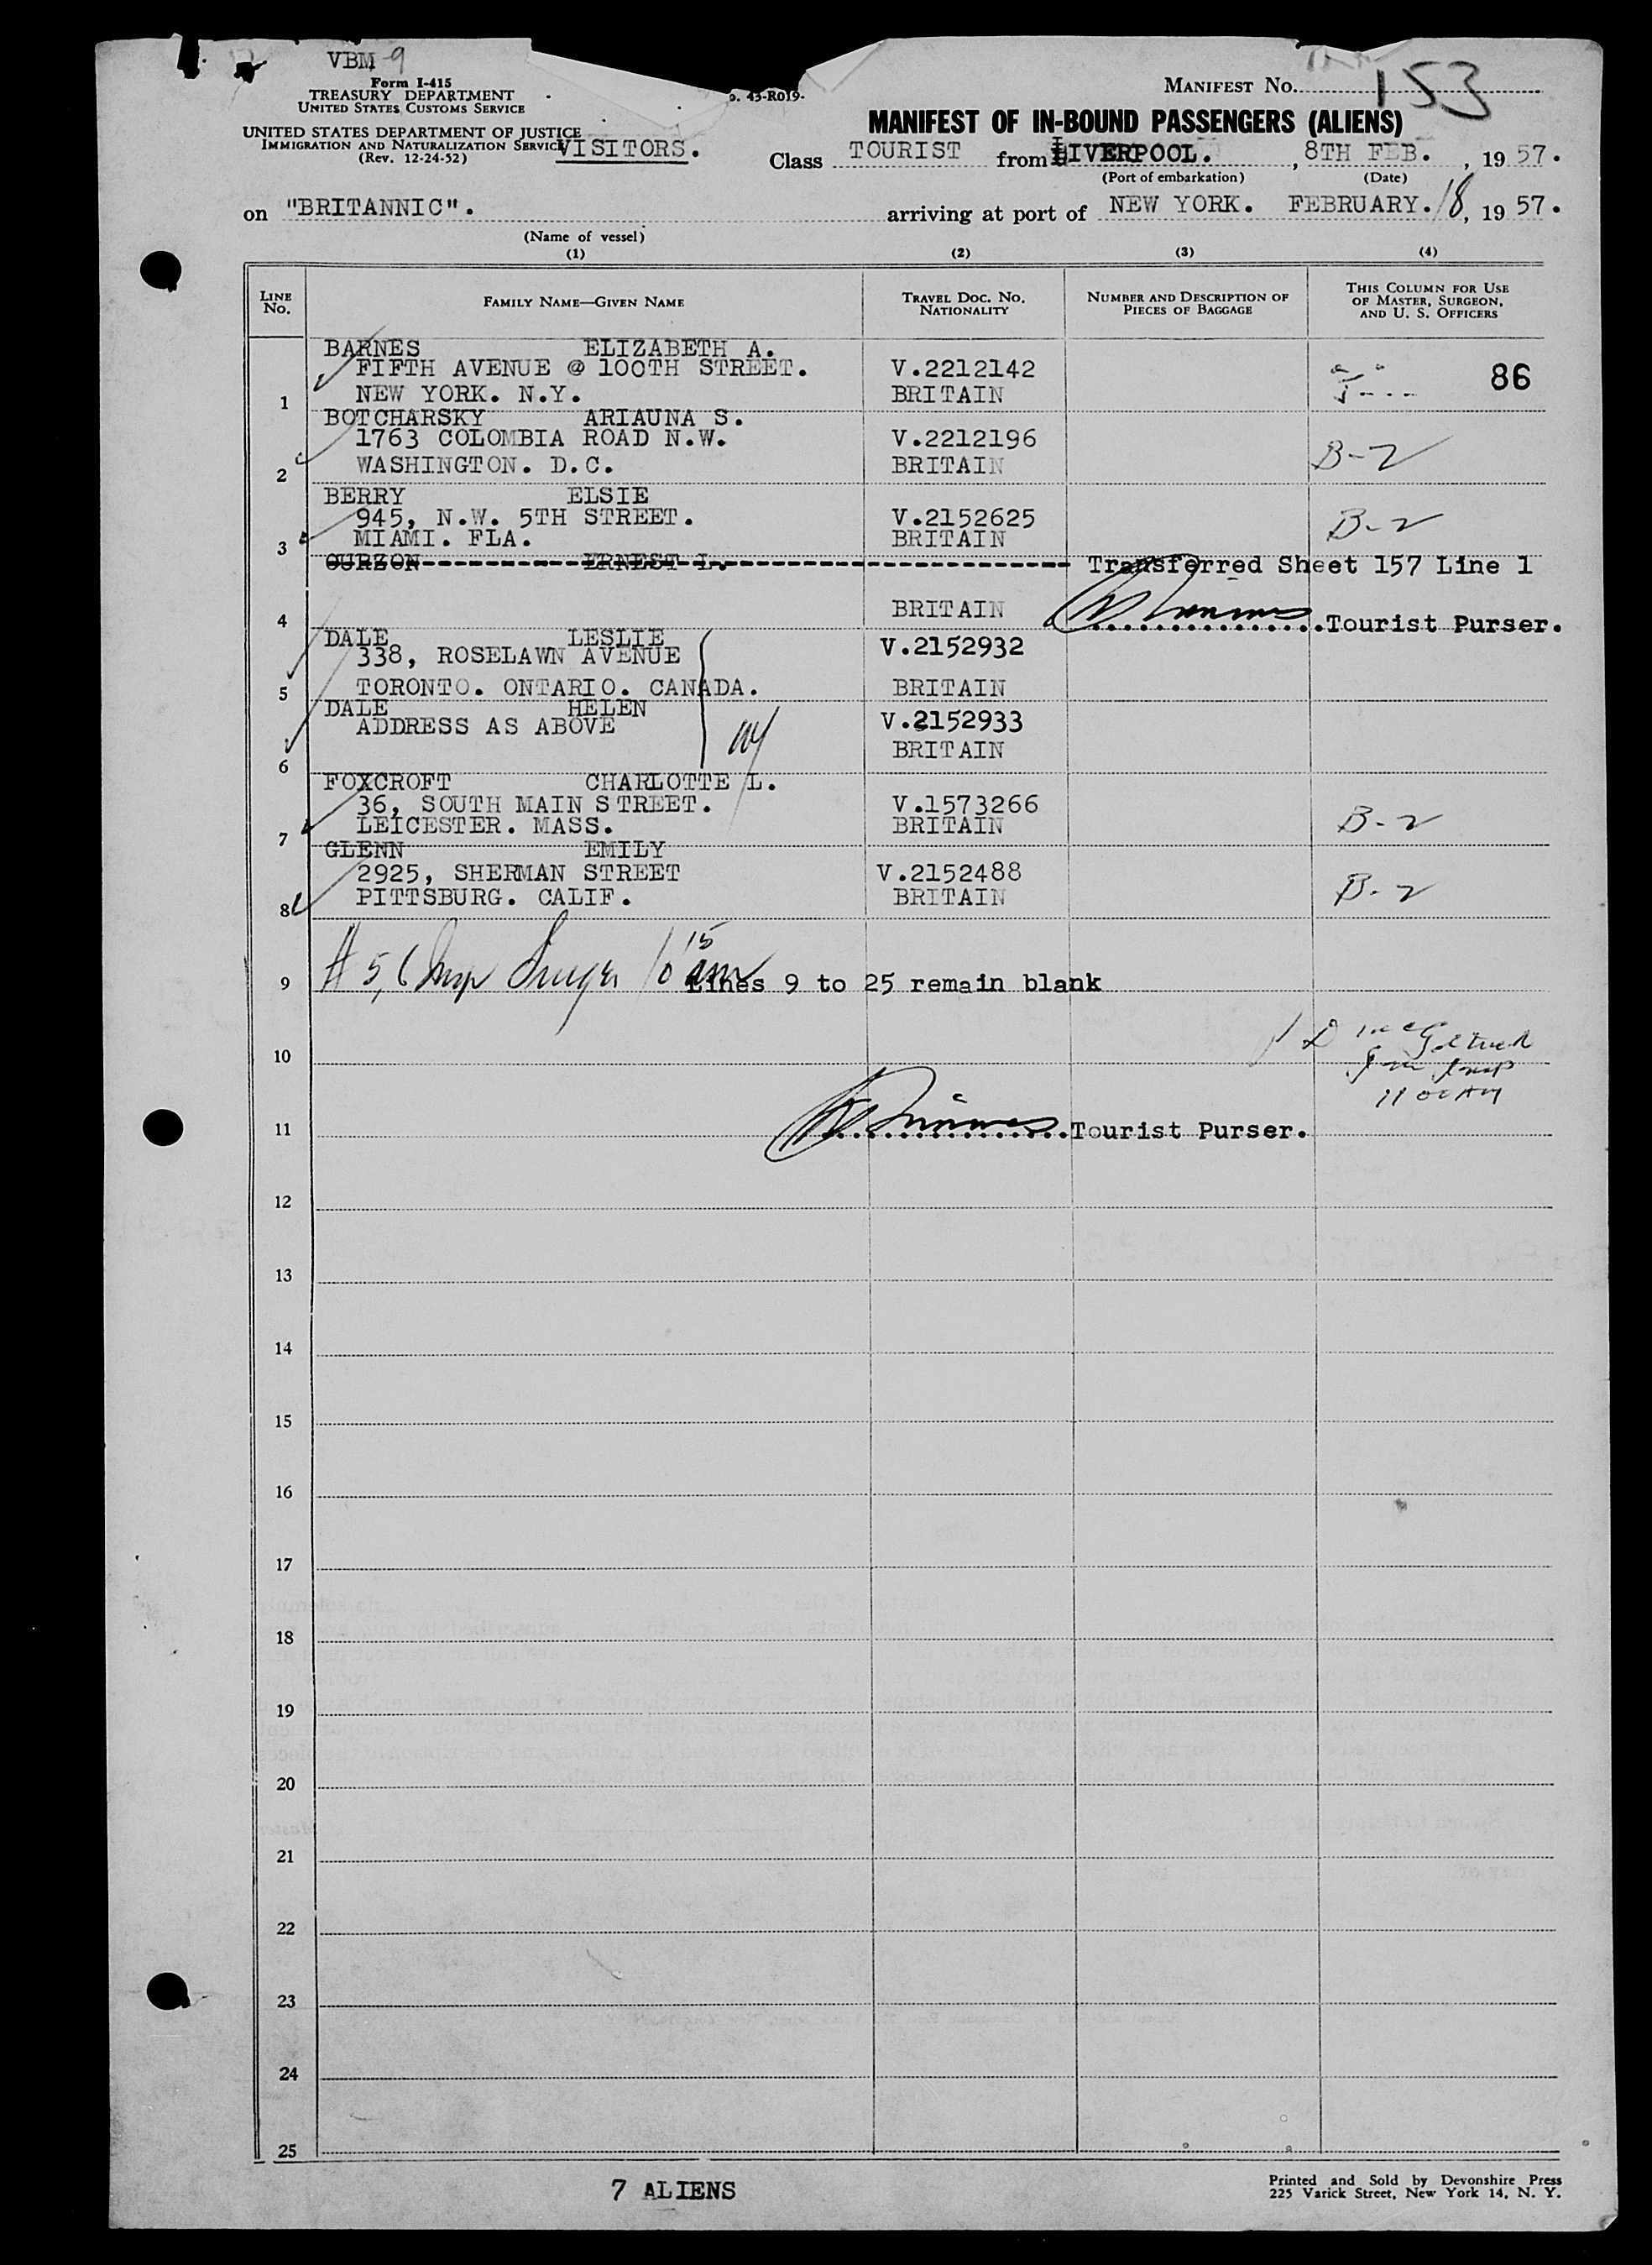 VBM 9
Form I-415
TREASURY DEPARTMENT
UNITED STATES CUSTOMS SERVICE
UNITED STATES DEPARTMENT OF JUSTICE
IMMIGRATION AND NATURALIZATION SERVICE
(Rev. 12-24-52)
VISITORS.
43-R019-
MANIFEST NO. 153
MANIFEST OF IN-BOUND PASSENGERS (ALIENS)
Class TOURIST from LIVERPOOL. , 8TH FEB. , 19 57.
(Port of embarkation) (Date)
on "BRITANNIC". arriving at port of NEW YORK. FEBRUARY. 18, 19 57.
(Name of vessel)
(1) (2) (3) (4)
LINE NO. FAMILY NAME—GIVEN NAME TRAVEL DOC. NO. NATIONALITY NUMBER AND DESCRIPTION OF PIECES OF BAGGAGE THIS COLUMN FOR USE OF MASTER, SURGEON, AND U. S. OFFICERS
BARNES ELIZABETH A.
FIFTH AVENUE @ 100TH STREET. V.2212142 86
1 NEW YORK. N.Y. BRITAIN
BOTCHARSKY ARIAUNA S.
1763 COLOMBIA ROAD N.W. V.2212196 B-2
2 WASHINGTON. D.C. BRITAIN
BERRY ELSIE
945, N.W. 5TH STREET. V.2152625 B-2
3 MIAMI. FLA. BRITAIN
CURZON ERNEST L. Transferred Sheet 157 Line 1
4 BRITAIN Tourist Purser.
DALE LESLIE
338, ROSELAWN AVENUE V.2152932
5 TORONTO. ONTARIO. CANADA. BRITAIN
DALE HELEN
ADDRESS AS ABOVE V.2152933
6 BRITAIN
FOXCROFT CHARLOTTE L.
36, SOUTH MAIN STREET. V.1573266
7 LEICESTER. MASS. BRITAIN B-2
GLENN EMILY
2925, SHERMAN STREET V.2152488
8 PITTSBURG. CALIF. BRITAIN B-2
# 5,6 Insp 10 15 am
9 Lines 9 to 25 remain blank
10
11 00 AM
11 Tourist Purser.
12
13
14
15
16
17
18
19
20
21
22
23
24
25
7 ALIENS
Printed and Sold by Devonshire Press
225 Varick Street, New York 14, N. Y.